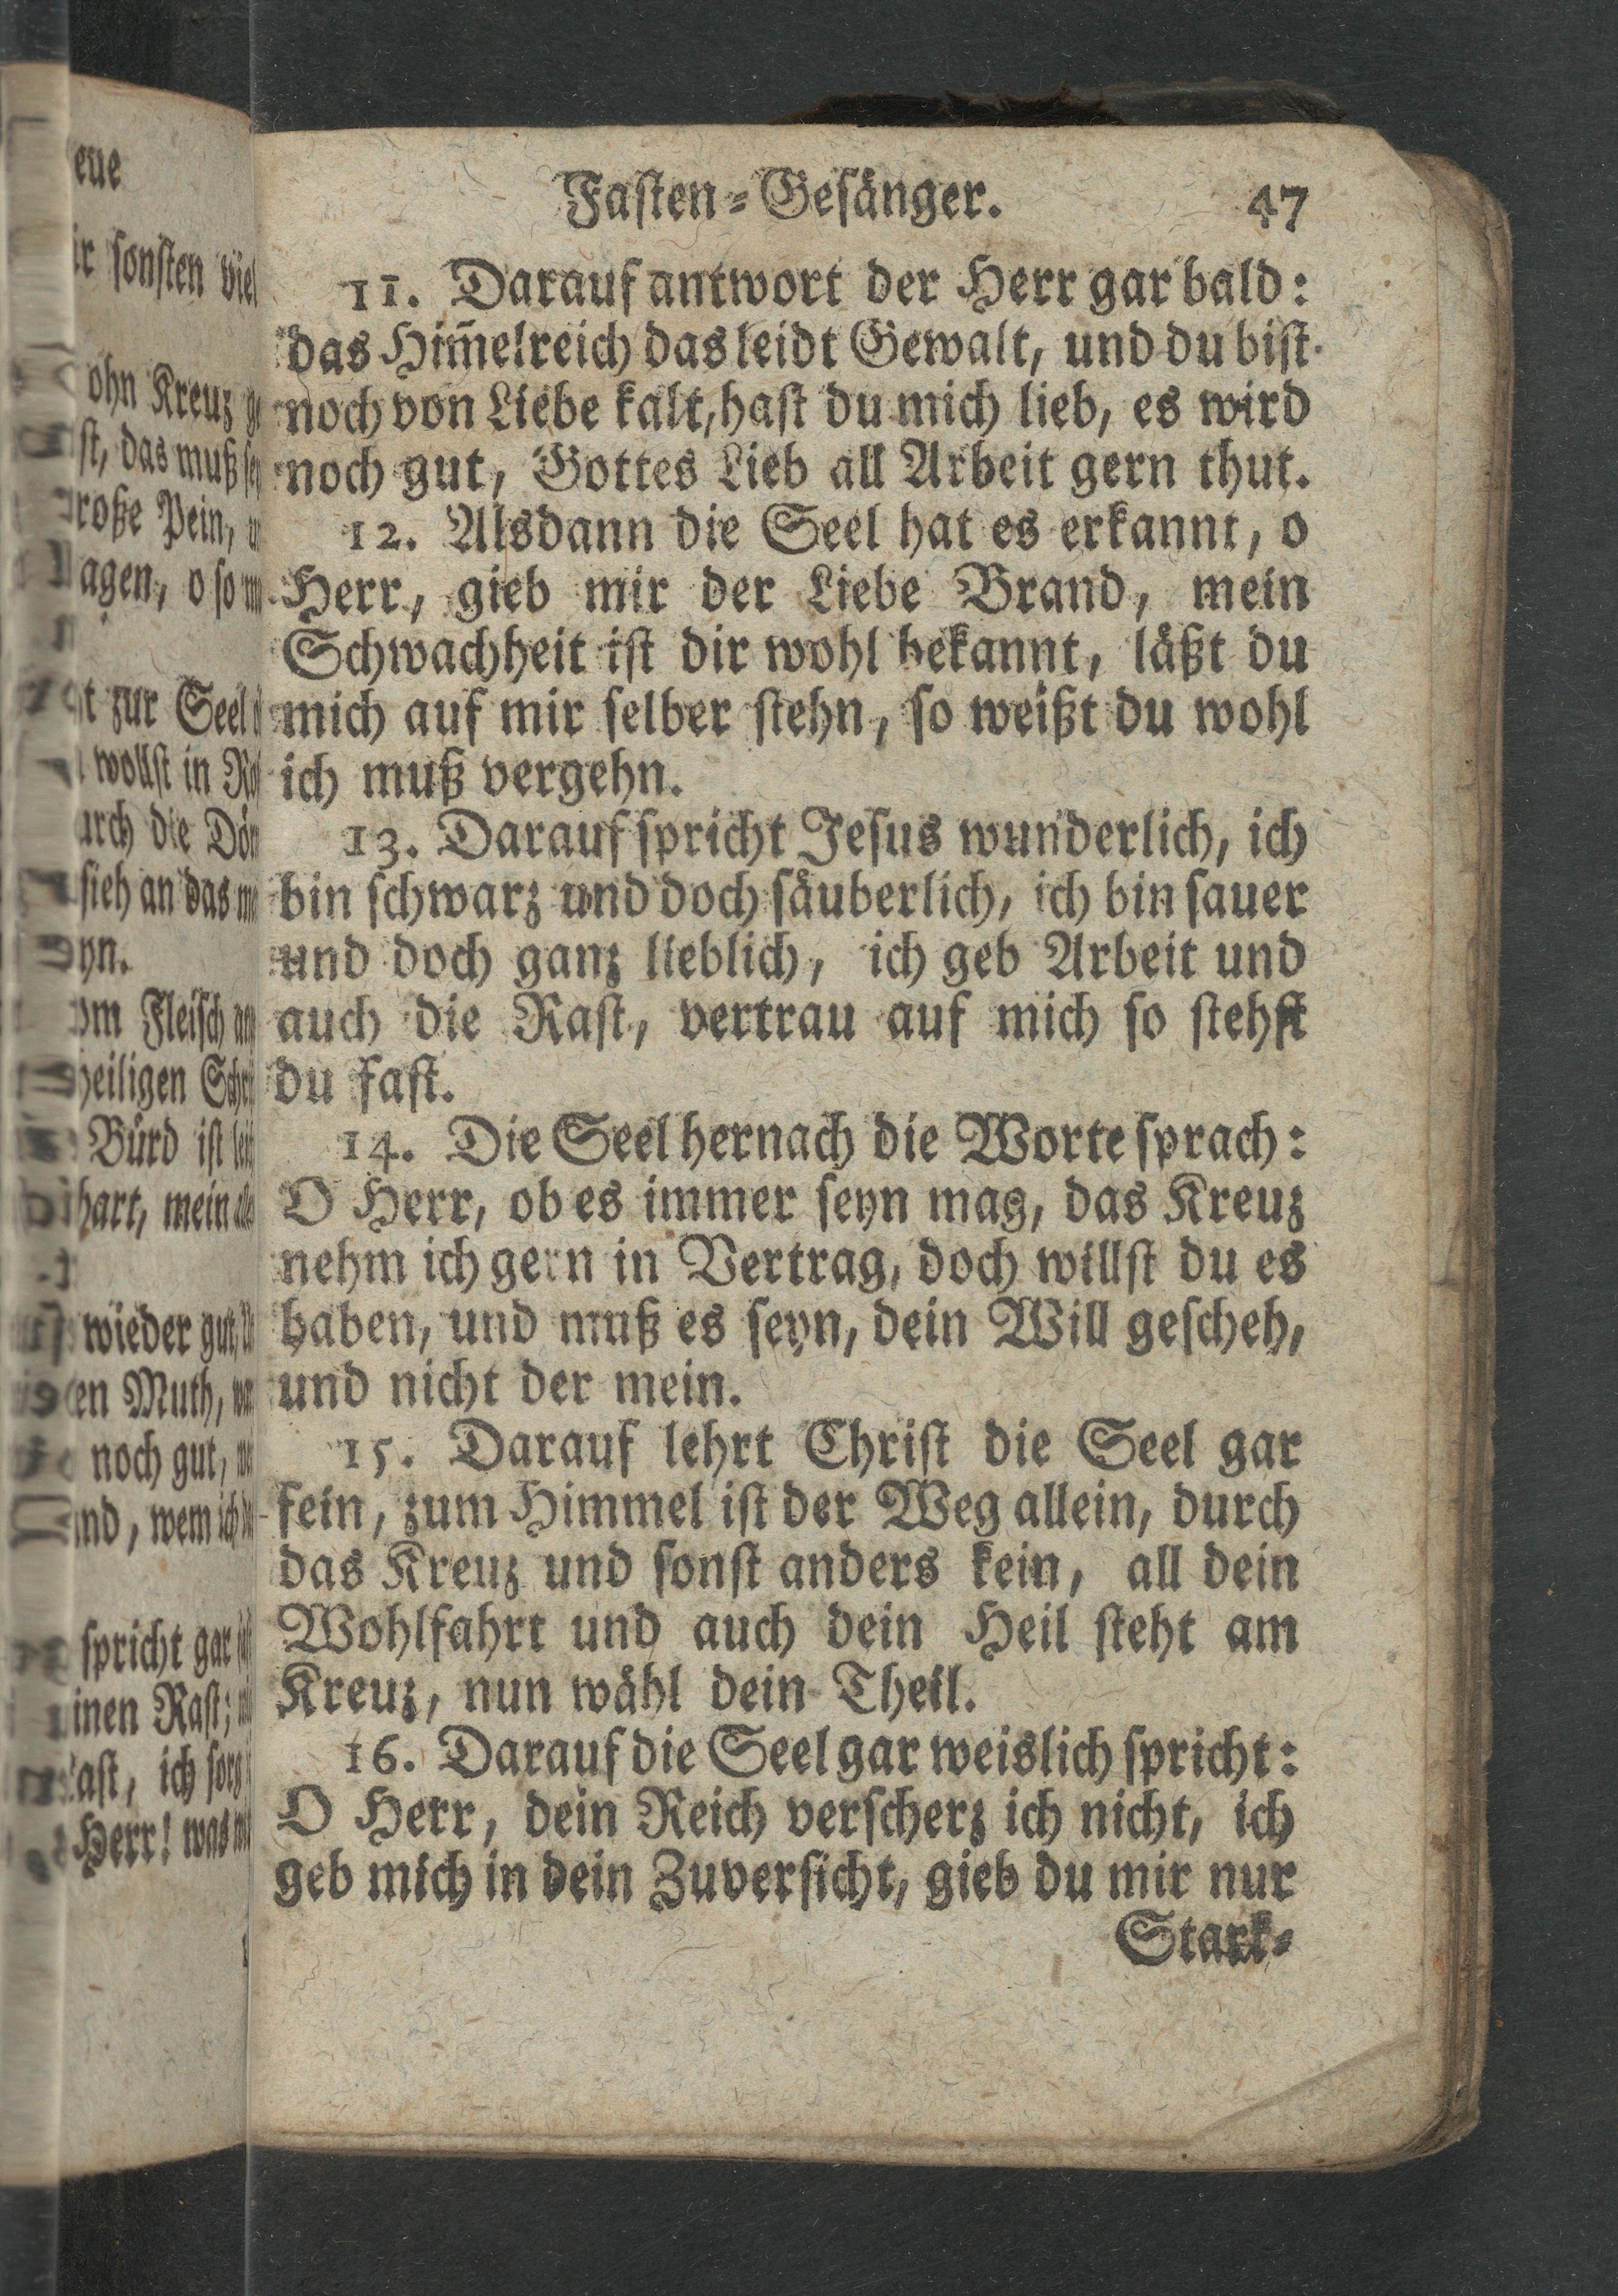 Fasten-Gesänger. 47
11. Darauf antwort der Herr gar bald:
das Him̄elreich das leidt Gewalt, und du bist
noch von Liebe kalt, hast du mich lieb, es wird
noch gut, Gottes Lieb all Arbeit gern thut.
12. Alsdann die Seel hat es erkannt, o
Herr, gieb mir der Liebe Brand, mein
Schwachheit ist dir wohl bekannt, läßt du
mich auf mir selber stehn, so weißt du wohl
ich muß vergehn.
13. Darauf spricht Jesus wunderlich, ich
bin schwarz und doch säuberlich, ich bin sauer
und doch ganz lieblich, ich geb Arbeit und
auch die Rast, vertrau auf mich so stehst
du fast.
14. Die Seel hernach die Worte sprach:
O Herr, ob es immer seyn mag, das Kreuz
nehm ich gern in Vertrag, doch willst du es
haben, und muß es seyn, dein Will gescheh,
und nicht der mein.
15. Darauf lehrt Christ die Seel gar
fein, zum Himmel ist der Weg allein, durch
das Kreuz und sonst anders kein, all dein
Wohlfahrt und auch dein Heil steht am
Kreuz, nun wähl dein Theil.
16. Darauf die Seel gar weislich spricht:
O Herr, dein Reich verscherz ich nicht, ich
geb mich in dein Zuversicht, gieb du mir nur
Stark-